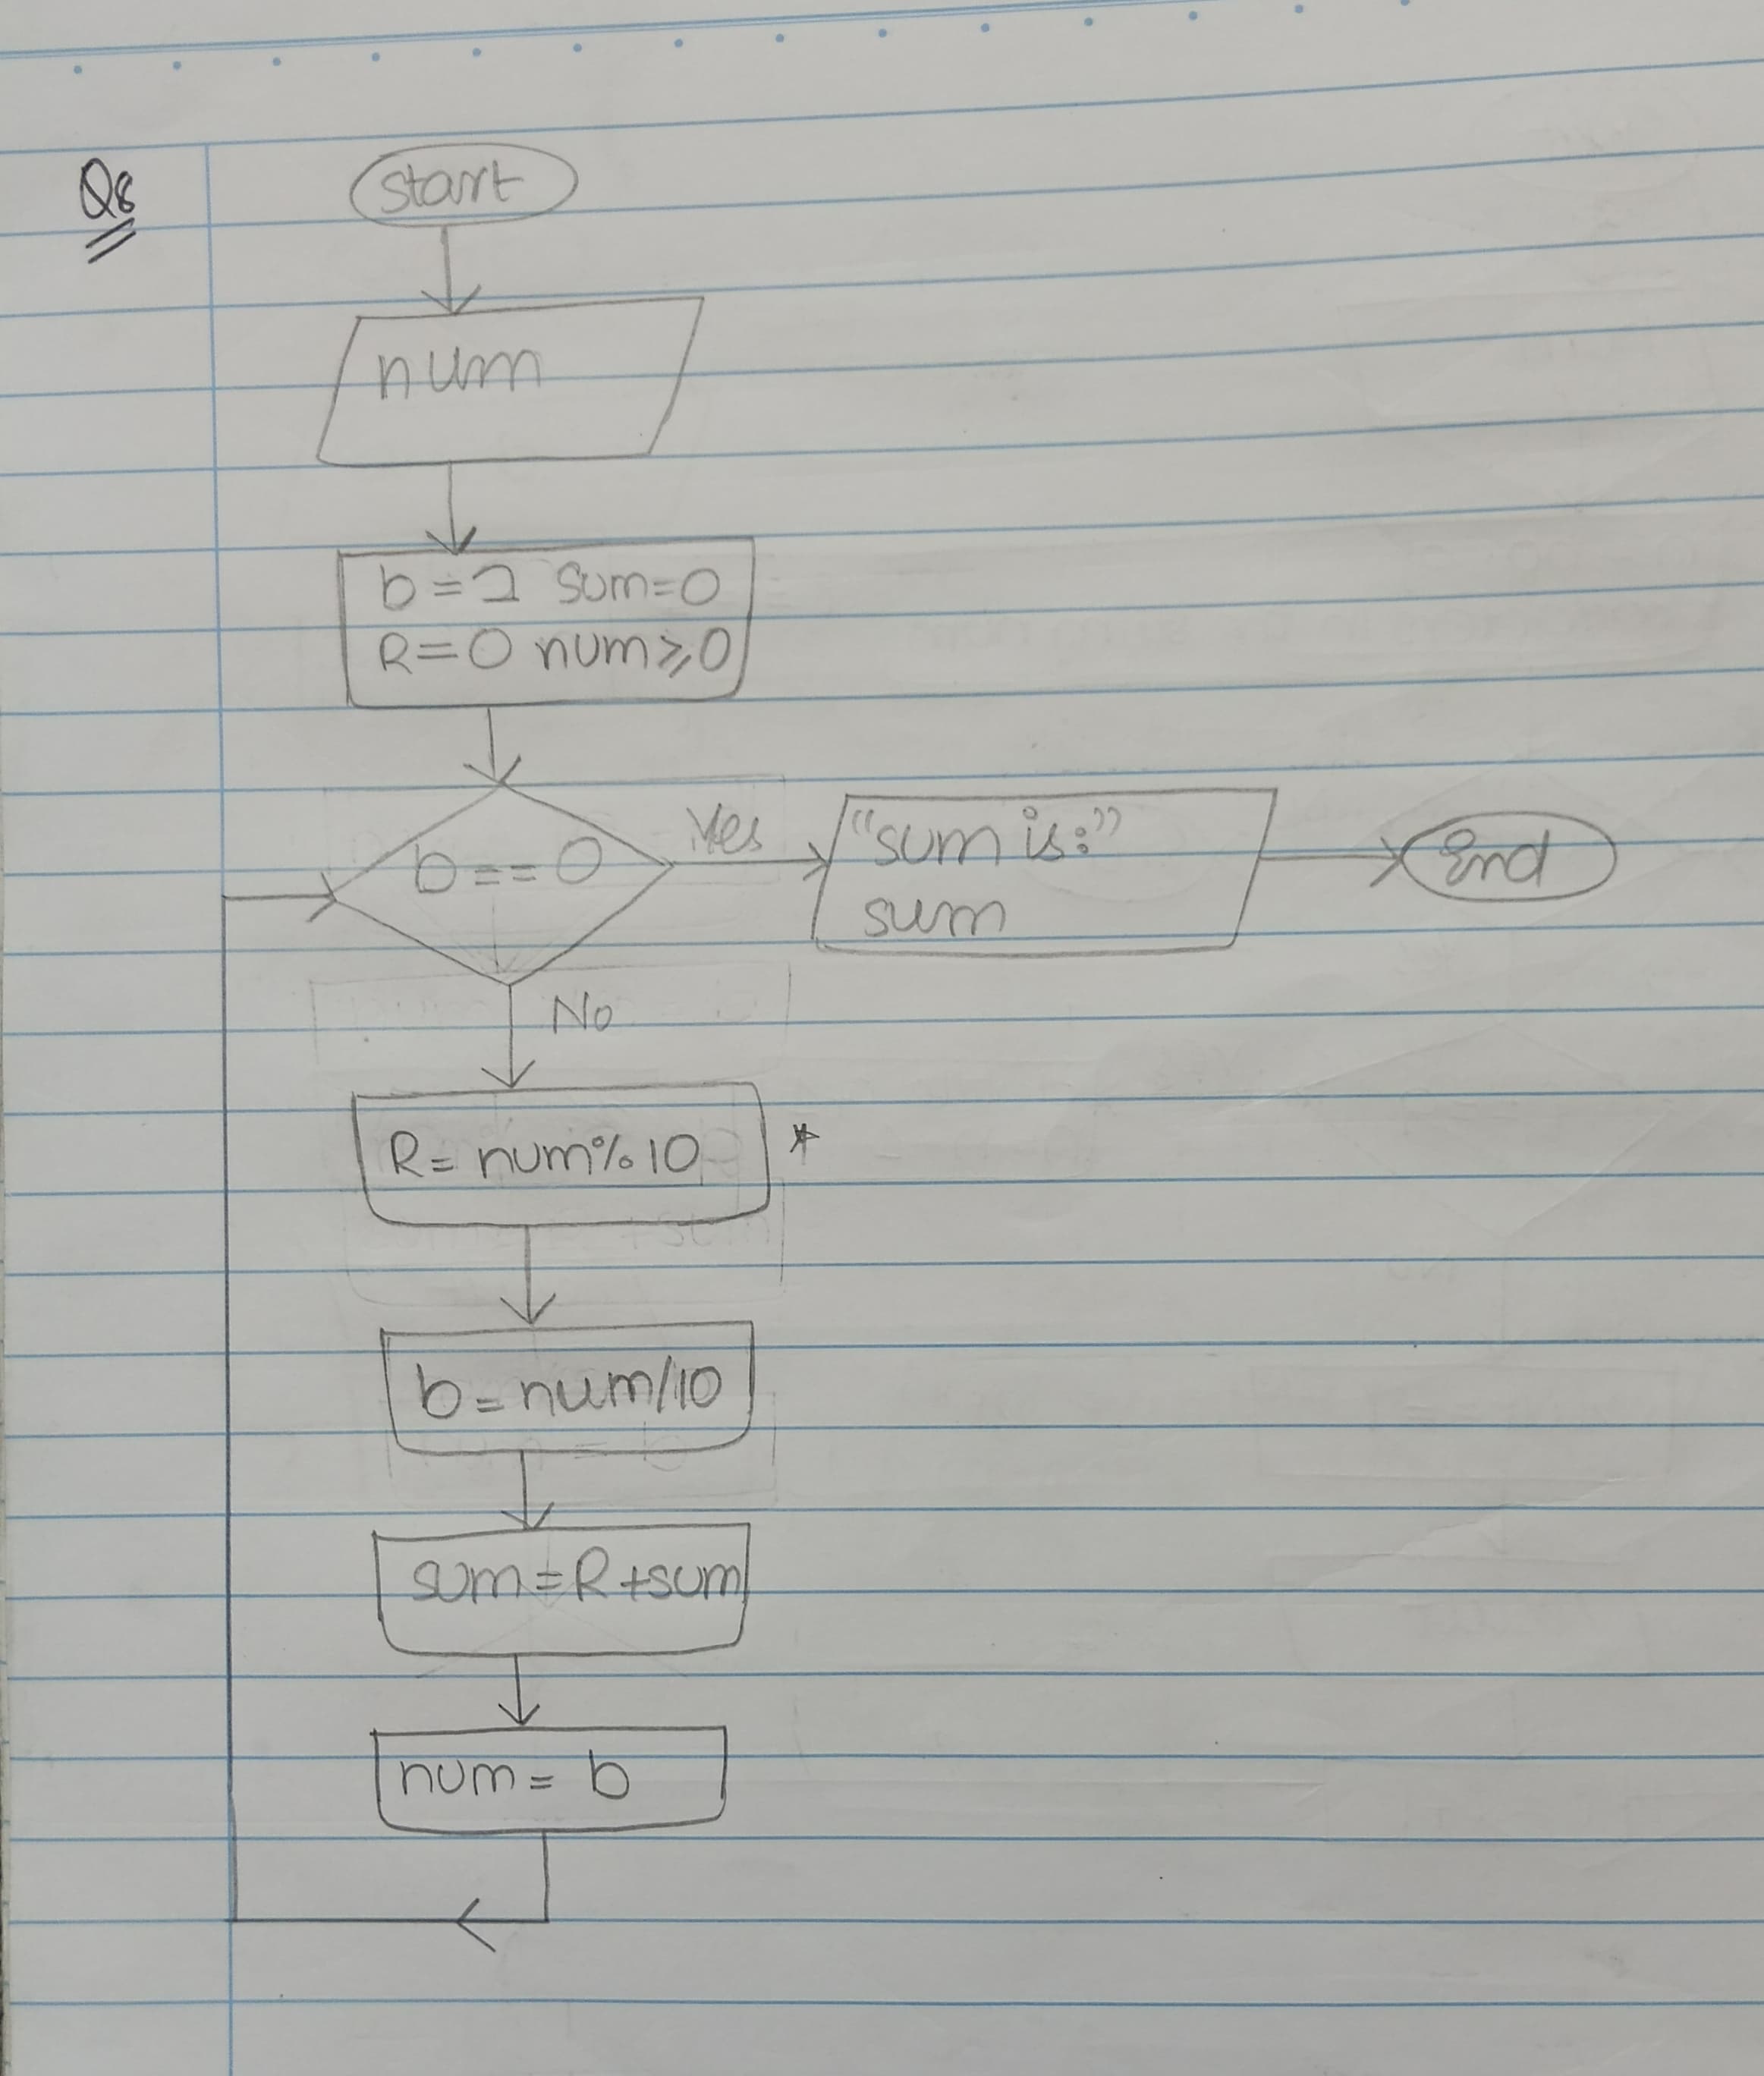 Q8
start
num
b=2 sum=0
R=0 num⩾0
b==0
Yes
"sum is:"
sum
End
No
R= num%10 *
b=num/10
sum=R+sum
num= b